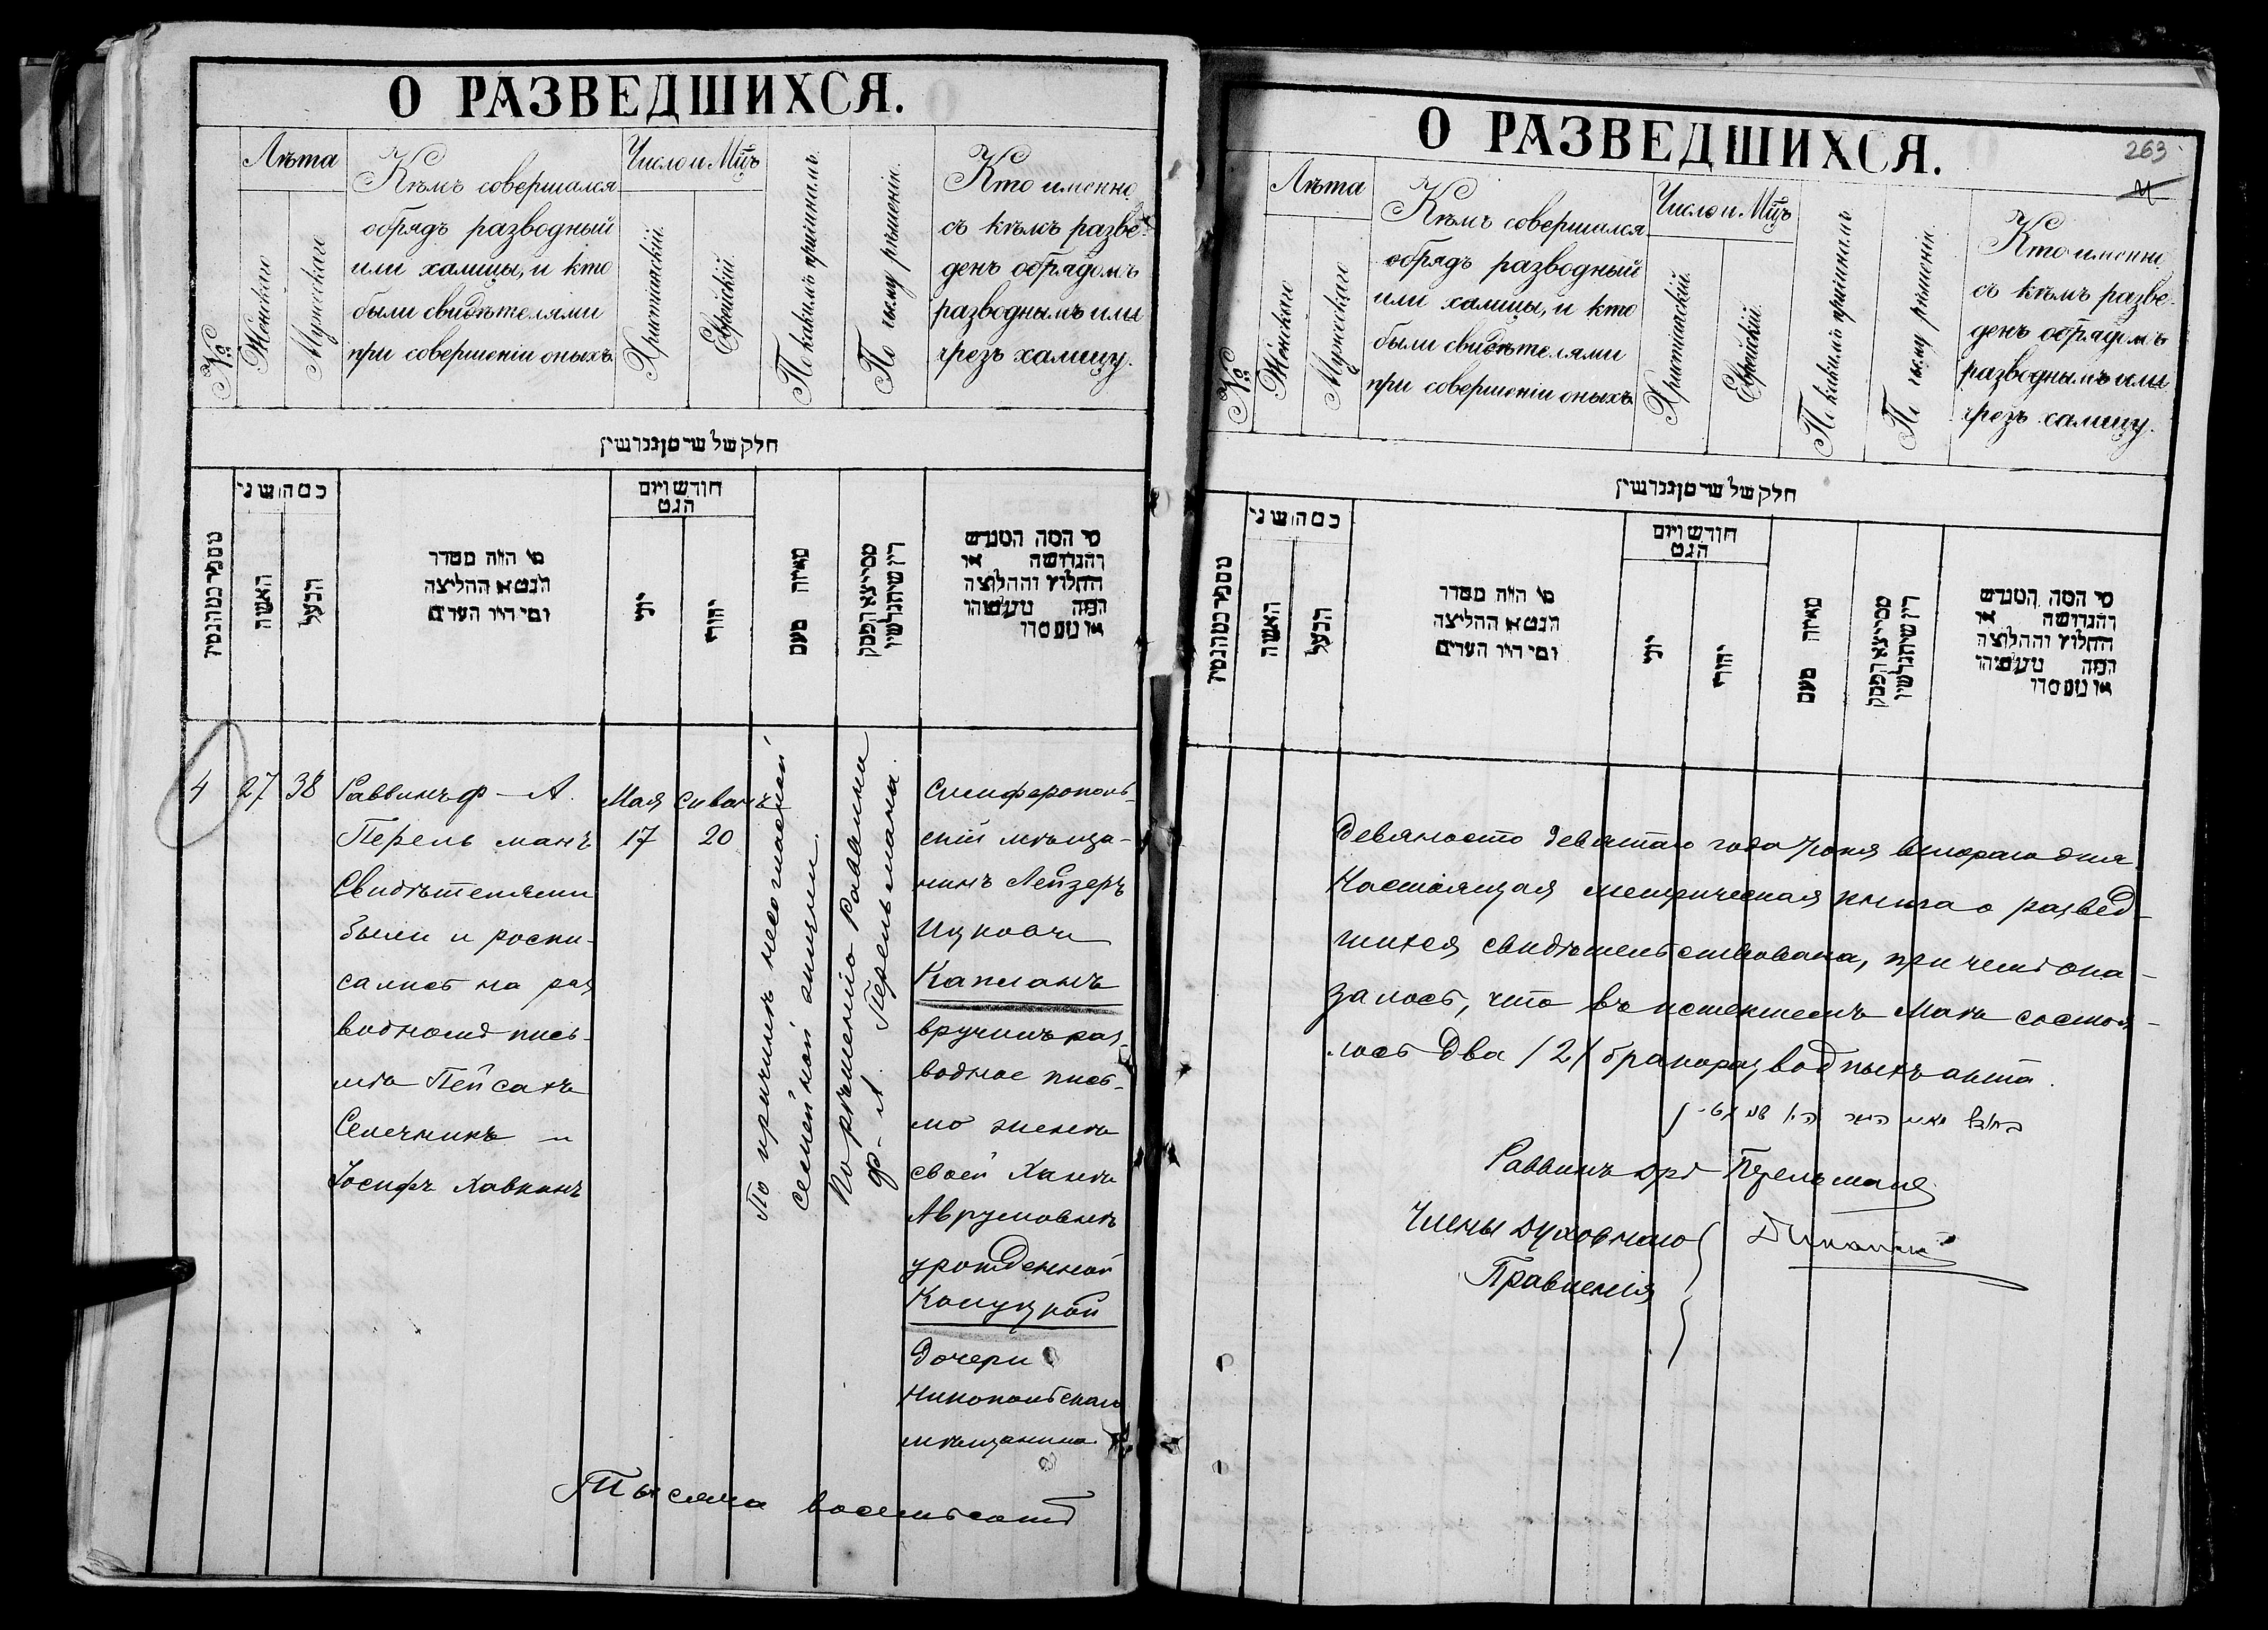 О РАЗВЕДШИХСЯ.
№
Лѣта
Женскаго
Мужескаго
Кѣмъ совершался
обрядъ разводный
или халицы, и кто
были свидѣтелями
при совершеніи оныхъ.
Число и Мцъ
Христіанскій.
Еврейскій.
По какимъ причинамъ.
По чьему рѣшенію.
Кто именно,
съ кѣмъ разве-
денъ обрядомъ
разводнымъ или
чрезъ халицу.
כמה שני
האשה
הבעל
מי היה מסדר
הגט או החליצה
ומי היו העדים
חודש ויום
הגט
יוני
יהודי
מאיזה טעם
מי המה המגרש
והגרושה או
החלוץ והחלוצה
4
27
38
Раввинъ Ф-А.
Перельманъ
Свидѣтелями
были и роспи-
сались на раз
водномъ пись-
мѣ Пейсахъ
Селечникъ и
Іосифъ Хавкинъ
Мая
17
Сиванъ
20
По причинѣ несогласной
семейной жизни.
По рѣшенію Раввина
Ф-А. Перельмана.
Симферополь-
скій мѣща-
нинъ Лейзеръ
Ицковъ
Капланъ
вручилъ раз-
водное пись-
мо женѣ
своей Ханѣ
Аврумовнѣ
урожденной
дочери
Никопольскаго
мѣщанина
Тысяча восемьсотъ
О РАЗВЕДШИХСЯ.
263
№
Лѣта
Женскаго
Мужескаго
Кѣмъ совершался
обрядъ разводный
или халицы, и кто
были свидѣтелями
при совершеніи оныхъ.
Число и Мцъ
Христіанскій.
Еврейскій.
По какимъ причинамъ
По чьему рѣшенію.
Кто именно,
съ кѣмъ разве-
денъ обрядомъ
разводнымъ или
чрезъ халицу.
כמה שני
האשה
הבעל
מי היה מסדר
הגט או החליצה
ומי היו העדים
חודש ויום
הגט
יוני
יהודי
מאיזה טעם
מי המה המגרש
והגרושה או
החלוץ והחלוצה
девяносто девятаго года Іюня втораго дня
Настоящая метрическая книга о развед-
шихся свидѣтельствована, при чемъ ока-
залось, что въ истекшемъ Маѣ состоя-
лось два /2/ бракоразводныхъ акта.
Раввинъ Перельманъ
Члены Духовнаго
Правленія